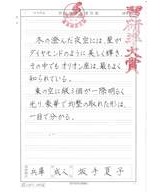 習研大賞
冬の澄んだ夜空には、星が
ダイヤモンドのように美しく輝き、
その中でもオリオン座は、最もよく
知られている。
東の空に縦3個が一際明るく
光り、豪華で均整の取れた形は、
一目で分かる。
兵庫 成人 坂手夏子